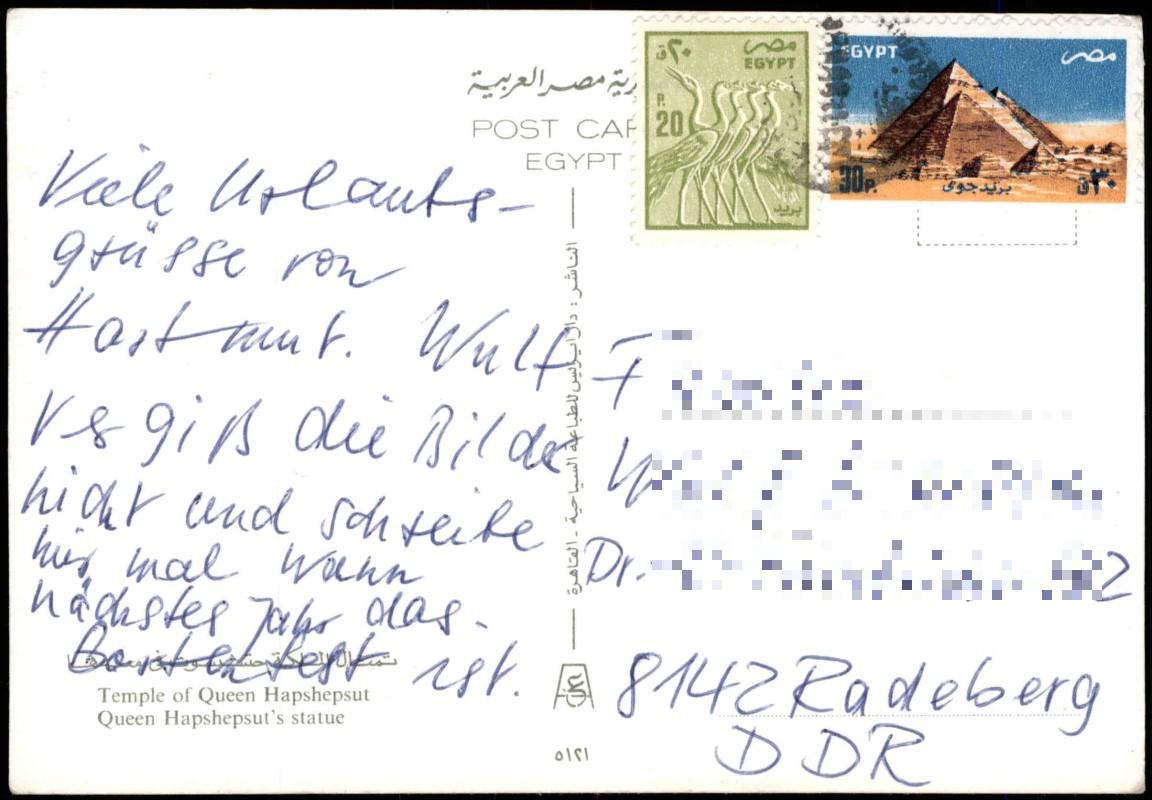 جمهورية مصر العربية
POST CAR
EGYPT
٢٠ ق
مصر
EGYPT
P.
20
بريد
EGYPT
مصر
30P.
بريد جوى
٣٠ ق
Viele Urlaubs-
grüsse von
Hartmut. Wulf
Vergiß die Bilder
nicht und schreibe
mir mal wann
nächstes Jahr das
ist.
الناشر : دار ايزيس للطباعة السياحية - القاهرة
Temple of Queen Hapshepsut
Queen Hapshepsut's statue
٥١٢١
F
W
Dr. 2
8142 Radeberg
DDR